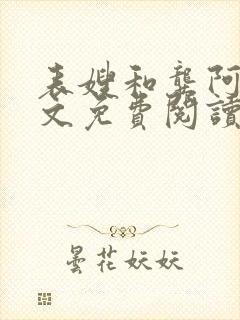 表嫂和龔阿
文免費閱讀
曇花妖妖